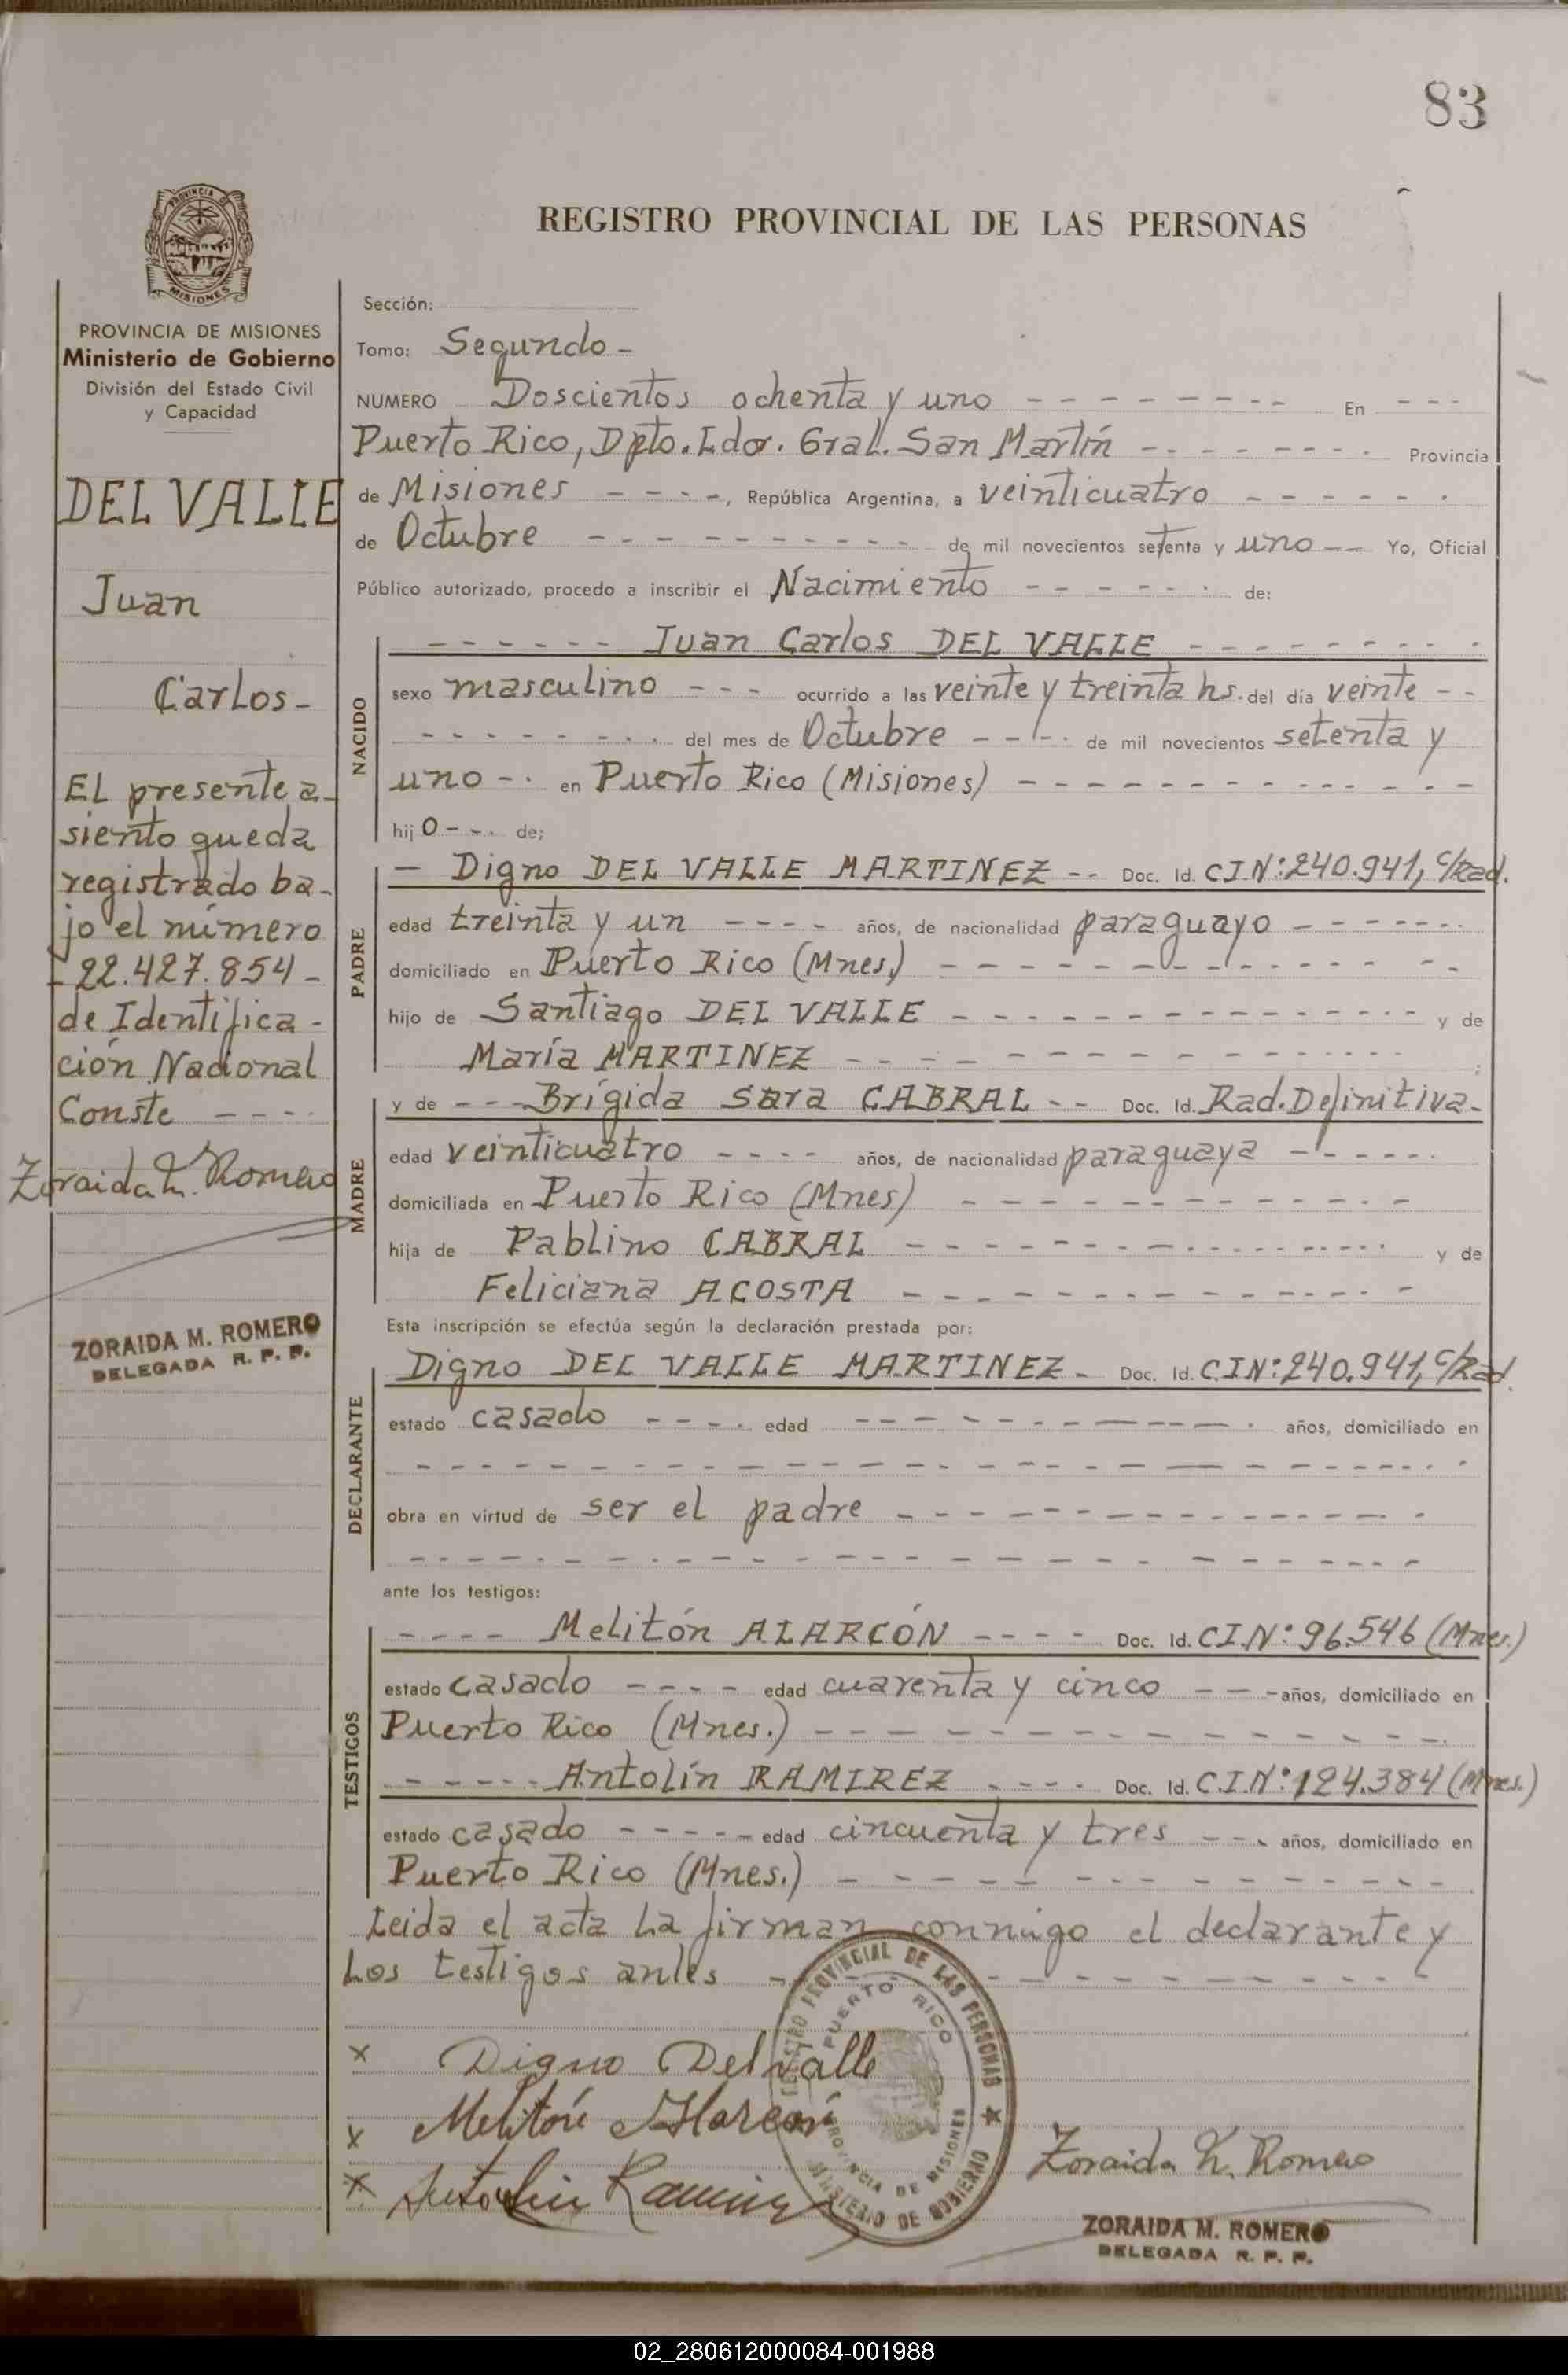 83
REGISTRO PROVINCIAL DE LAS PERSONAS
PROVINCIA DE MISIONES
Ministerio de Gobierno
División del Estado Civil
y Capacidad
DEL VALLE
Juan
Carlos -
El presente a-
siento queda
registrado ba-
jo el número
- 22.427.854 -
de Identifica-
ción Nacional
Conste ----
Zoraida M. Romero
ZORAIDA M. ROMERO
DELEGADA R. P. P.
Sección:
Tomo: Segundo -
NUMERO Doscientos ochenta y uno --------- En ---
Puerto Rico, Dpto. Ldor. Gral. San Martín -------- Provincia
de Misiones ----, República Argentina, a veinticuatro -------
de Octubre ----------- de mil novecientos setenta y uno -- Yo, Oficial
Público autorizado, procedo a inscribir el Nacimiento ------ de:
NACIDO
------ Juan Carlos DEL VALLE ---------
sexo masculino --- ocurrido a las veinte y treinta hs. del día veinte --
-------- del mes de Octubre ---- de mil novecientos setenta y
uno -. en Puerto Rico (Misiones) -------------
hijo --. de;
PADRE
- Digno DEL VALLE MARTINEZ -- Doc. Id. C.I.N°: 240.941, c/Rad.
edad treinta y un ---- años, de nacionalidad paraguayo ------
domiciliado en Puerto Rico (Mnes.) --------------
hijo de Santiago DEL VALLE -------------- y de
María MARTINEZ --------------- ;
MADRE
y de --- Brígida Sara CABRAL -- Doc. Id. Rad. Definitiva-
edad veinticuatro ---- años, de nacionalidad paraguaya ------
domiciliada en Puerto Rico (Mnes) ------------
hija de Pablino CABRAL -------------- y de
Feliciana ACOSTA --------------
Esta inscripción se efectúa según la declaración prestada por:
DECLARANTE
Digno DEL VALLE MARTINEZ - Doc. Id. C.I.N°: 240.941, c/Rad.
estado casado ---- edad ------------ años, domiciliado en
----------------------------
obra en virtud de ser el padre ---------------
----------------------------
ante los testigos:
TESTIGOS
---- Melitón ALARCÓN ---- Doc. Id. C.I.N° 96.546 (Mnes.)
estado casado ---- edad cuarenta y cinco --- años, domiciliado en
Puerto Rico (Mnes.) ----------------
----- Antolín RAMIREZ ---- Doc. Id. C.I.N° 124.384 (Mnes.)
estado casado ----- edad cincuenta y tres --- años, domiciliado en
Puerto Rico (Mnes.) ----------------
Leida el acta la firman conmigo el declarante y
Los testigos antes -------------
x Digno Delvalle
x Melitón Alarcón
x Antolin Ramirez
REGISTRO PROVINCIAL DE LAS PERSONAS ★ MINISTERIO DE GOBIERNO
PUERTO RICO
PROVINCIA DE MISIONES
Zoraida M. Romero
ZORAIDA M. ROMERO
DELEGADA R. P. P.
02_280612000084-001988